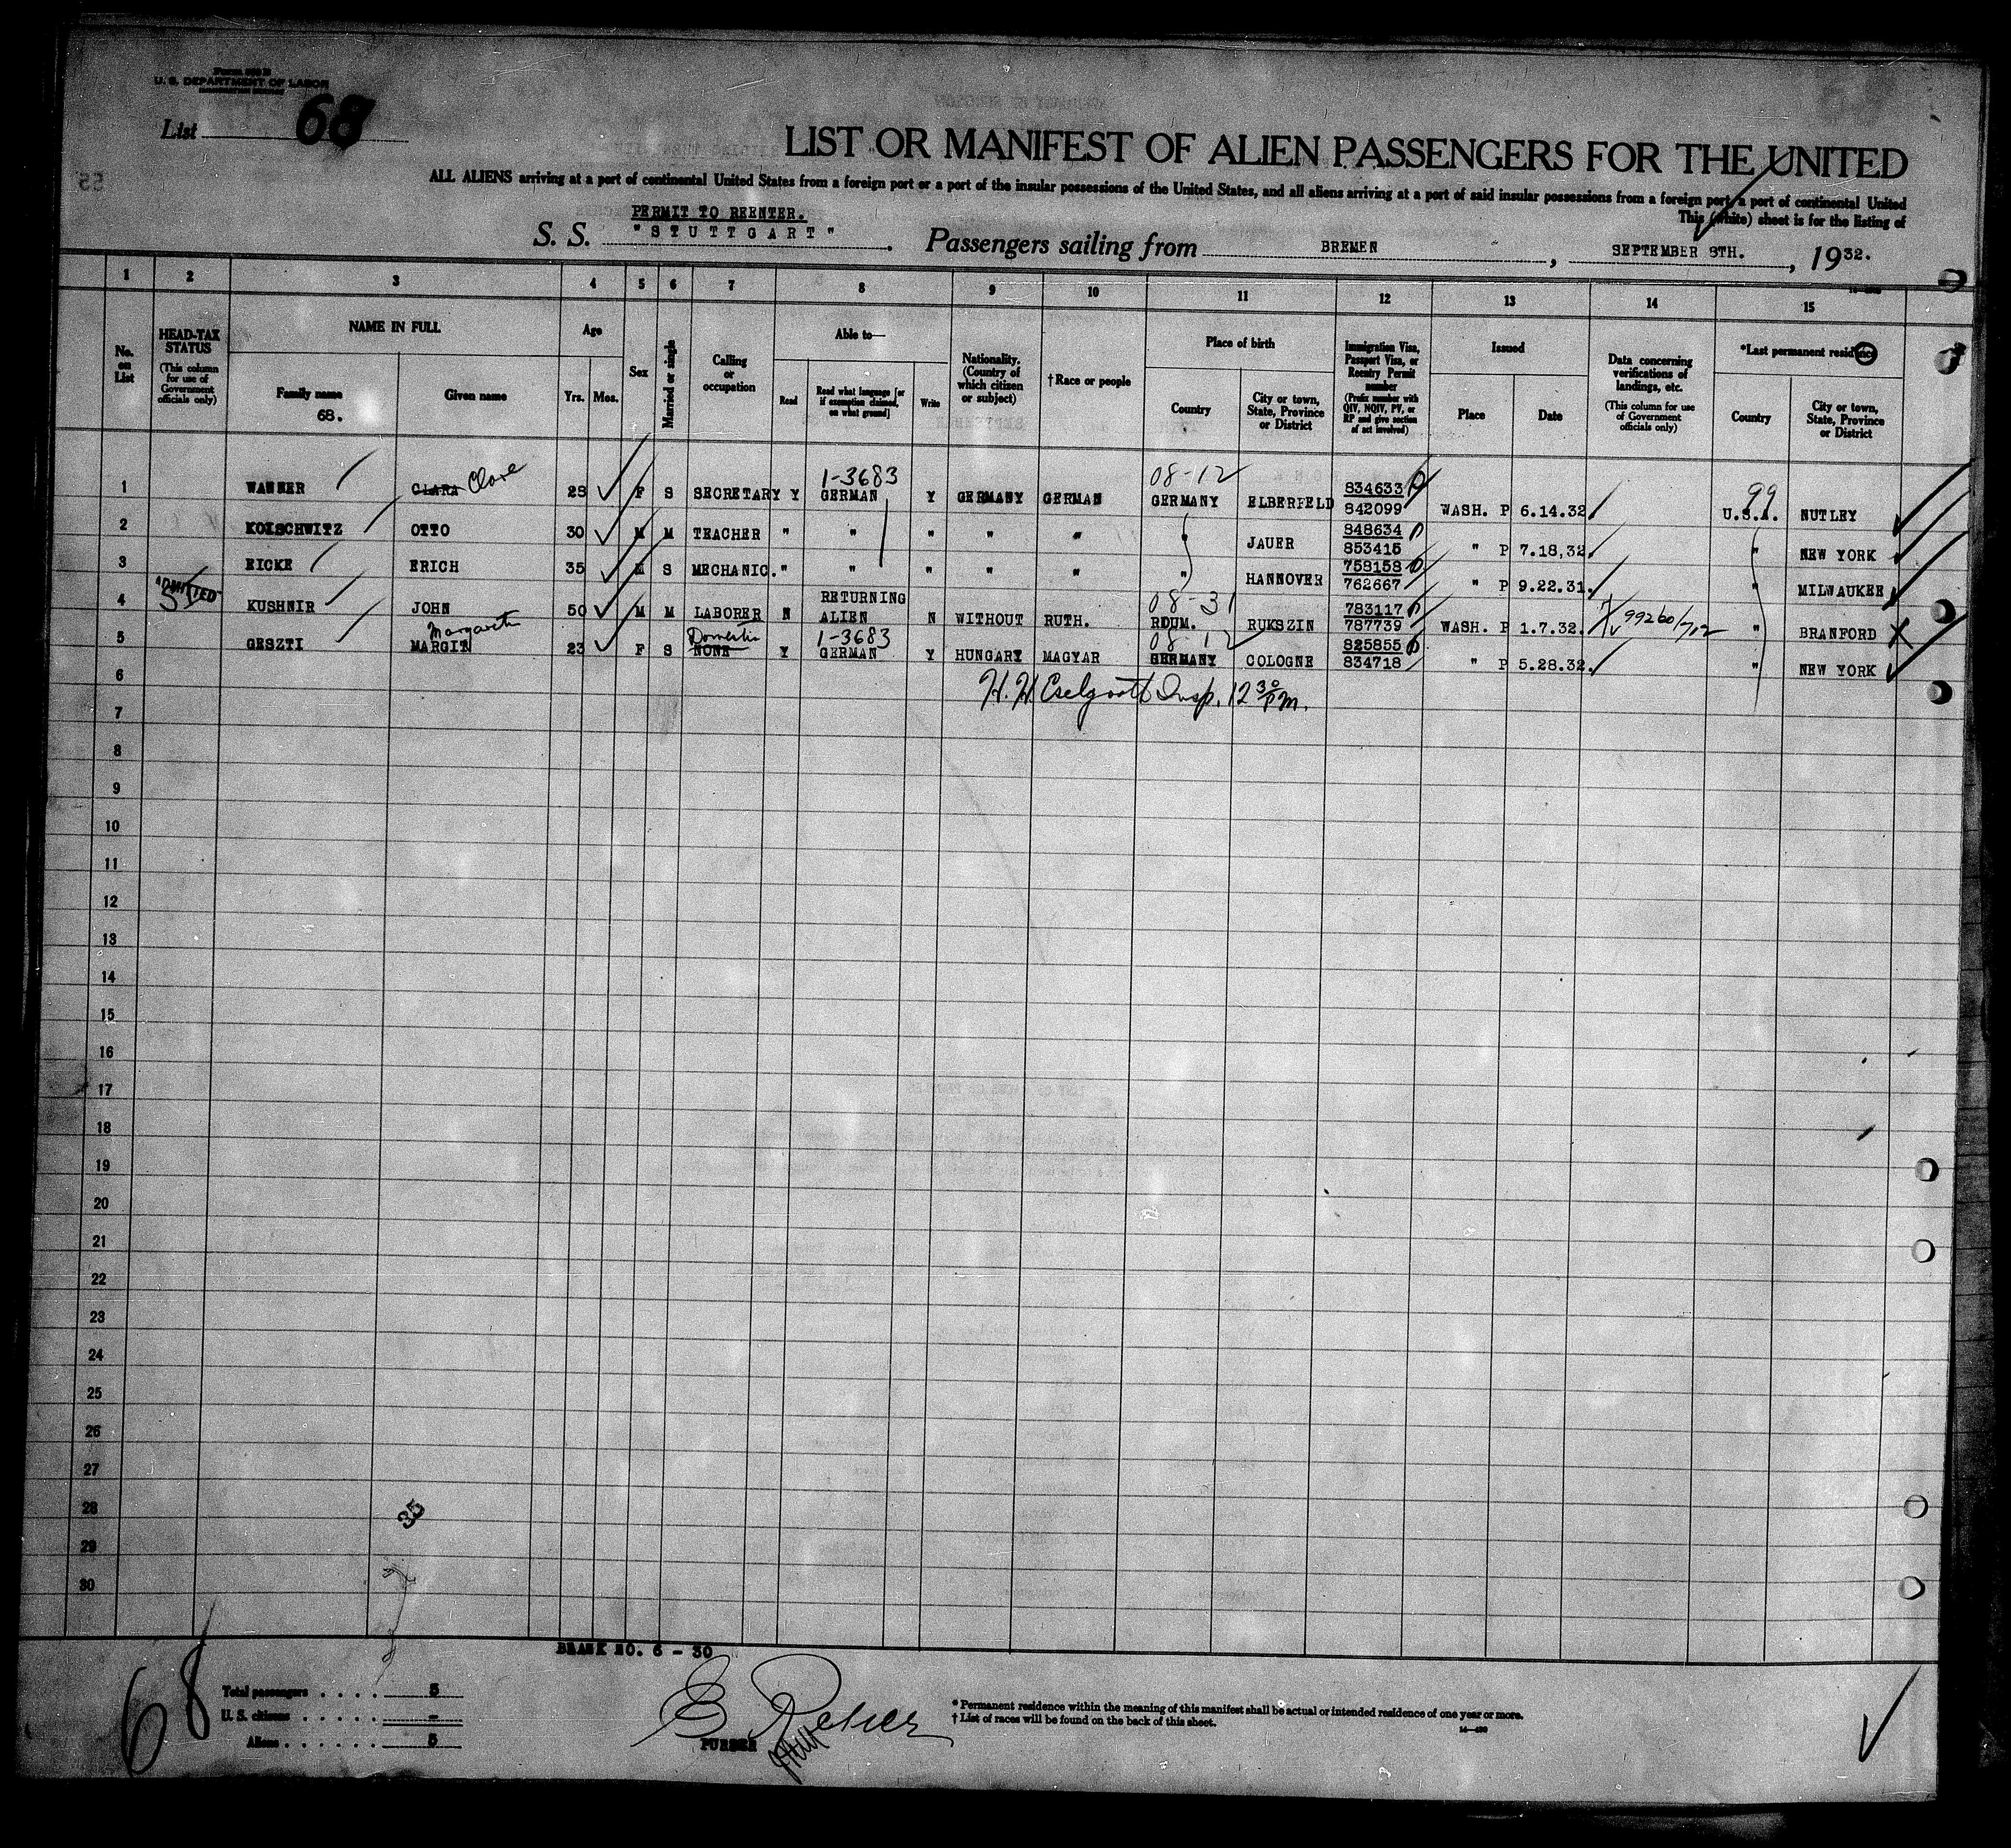 Form 500 B
U. S. DEPARTMENT OF LABOR
List 68
LIST OR MANIFEST OF ALIEN PASSENGERS FOR THE UNITED
ALL ALIENS arriving at a port of continental United States from a foreign port or a port of the insular possessions of the United States, and all aliens arriving at a port of said insular possessions from a foreign port, a port of continental United
This (white) sheet is for the listing of
PERMIT TO REENTER.
S. S. "STUTTGART". Passengers sailing from BREMEN, SEPTEMBER 8TH., 1932.
1 2 3 4 5 6 7 8 9 10 11 12 13 14 15
No. on List
HEAD-TAX STATUS (This column for use of Government officials only)
NAME IN FULL
Family name
68.
Given name
Age
Yrs. Mos.
Sex
Married or single
Calling or occupation
Able to—
Read
Read what language [or if exemption claimed, on what ground]
Write
Nationality. (Country of which citizen or subject)
†Race or people
Place of birth
Country
City or town, State, Province or District
Immigration Visa, Passport Visa, or Reentry Permit number (Prefix number with QIV, NQIV, PV, or RP and give section of act involved)
Issued
Place
Date
Data concerning verifications of landings, etc. (This column for use of Government officials only)
*Last permanent residence
Country
City or town, State, Province or District
1-3683 08-12 834633 99
1 WANNER CLARA Clare 28 F S SECRETARY Y GERMAN Y GERMANY GERMAN GERMANY ELBERFELD 842099 WASH. P 6.14.32 U.S.A. NUTLEY
848634
2 KOLSCHWITZ OTTO 30 M M TEACHER " " " " " " JAUER 853415 " P 7.18,32. " NEW YORK
758158
3 RICKE ERICH 35 M S MECHANIC. " " " " " " HANNOVER 762667 " P 9.22.31. " MILWAUKEE
ADMITTED RETURNING 08-31 783117
4 KUSHNIR JOHN 50 M M LABORER N ALIEN N WITHOUT RUTH. ROUM. RUKSZIN 787739 WASH. P 1.7.32. 99260/712 " BRANFORD X
Margareta Domestic 1-3683 08-12 825855
5 GESZTI MARGIT 23 F S NONE Y GERMAN Y HUNGARY MAGYAR GERMANY COLOGNE 834718 " P 5.28.32. " NEW YORK
6
H. H. Insp. 12 30 P.m.
7
8
9
10
11
12
13
14
15
16
17
18
19
20
21
22
23
24
25
26
27
28
35
29
30
BLANK NO. 6 - 30
68
Total passengers . . . . 5
U. S. citizens . . . . . -
Aliens . . . . . . 5
PURSER
* Permanent residence within the meaning of this manifest shall be actual or intended residence of one year or more.
† List of races will be found on the back of this sheet.